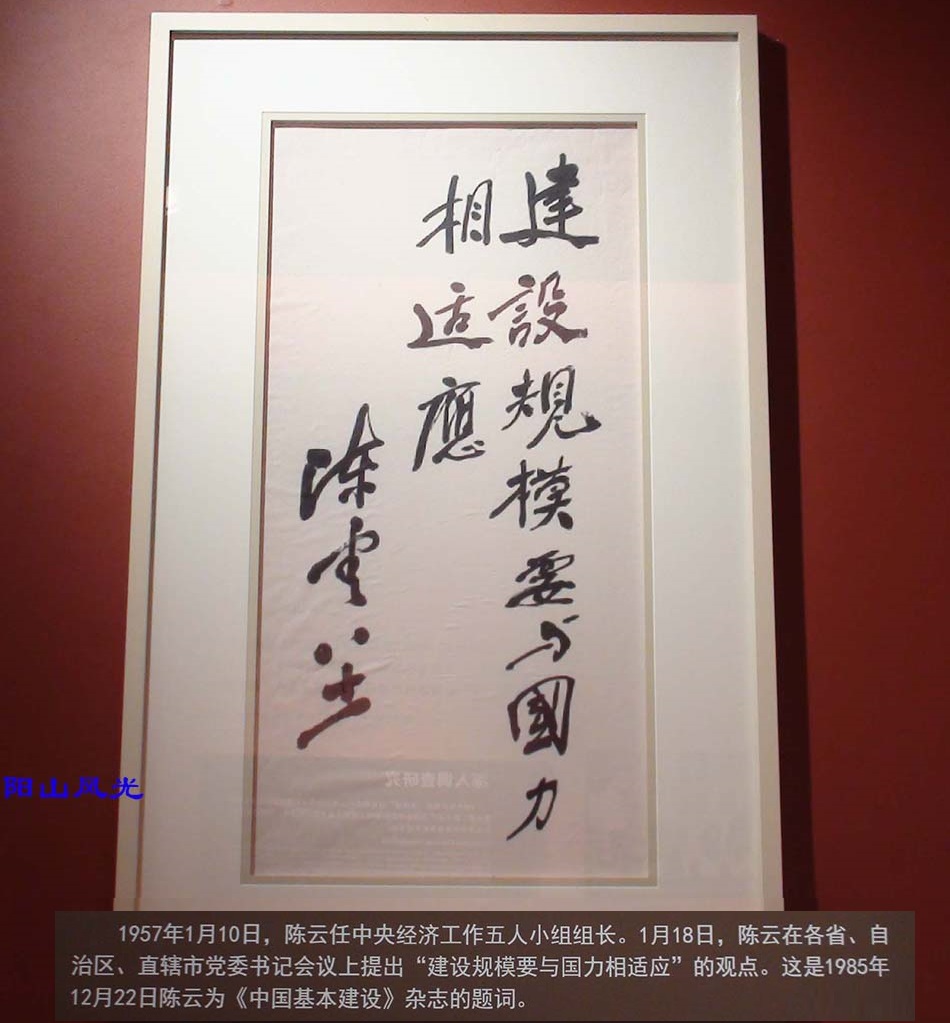 建設規模要与國力
相适應
陈云
深入调查研究
阳山风光
1957年1月10日，陈云任中央经济工作五人小组组长。1月18日，陈云在各省、自
治区、直辖市党委书记会议上提出“建设规模要与国力相适应”的观点。这是1985年
12月22日陈云为《中国基本建设》杂志的题词。